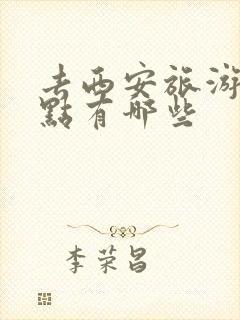 去西安旅游
點有哪些
李荣昌